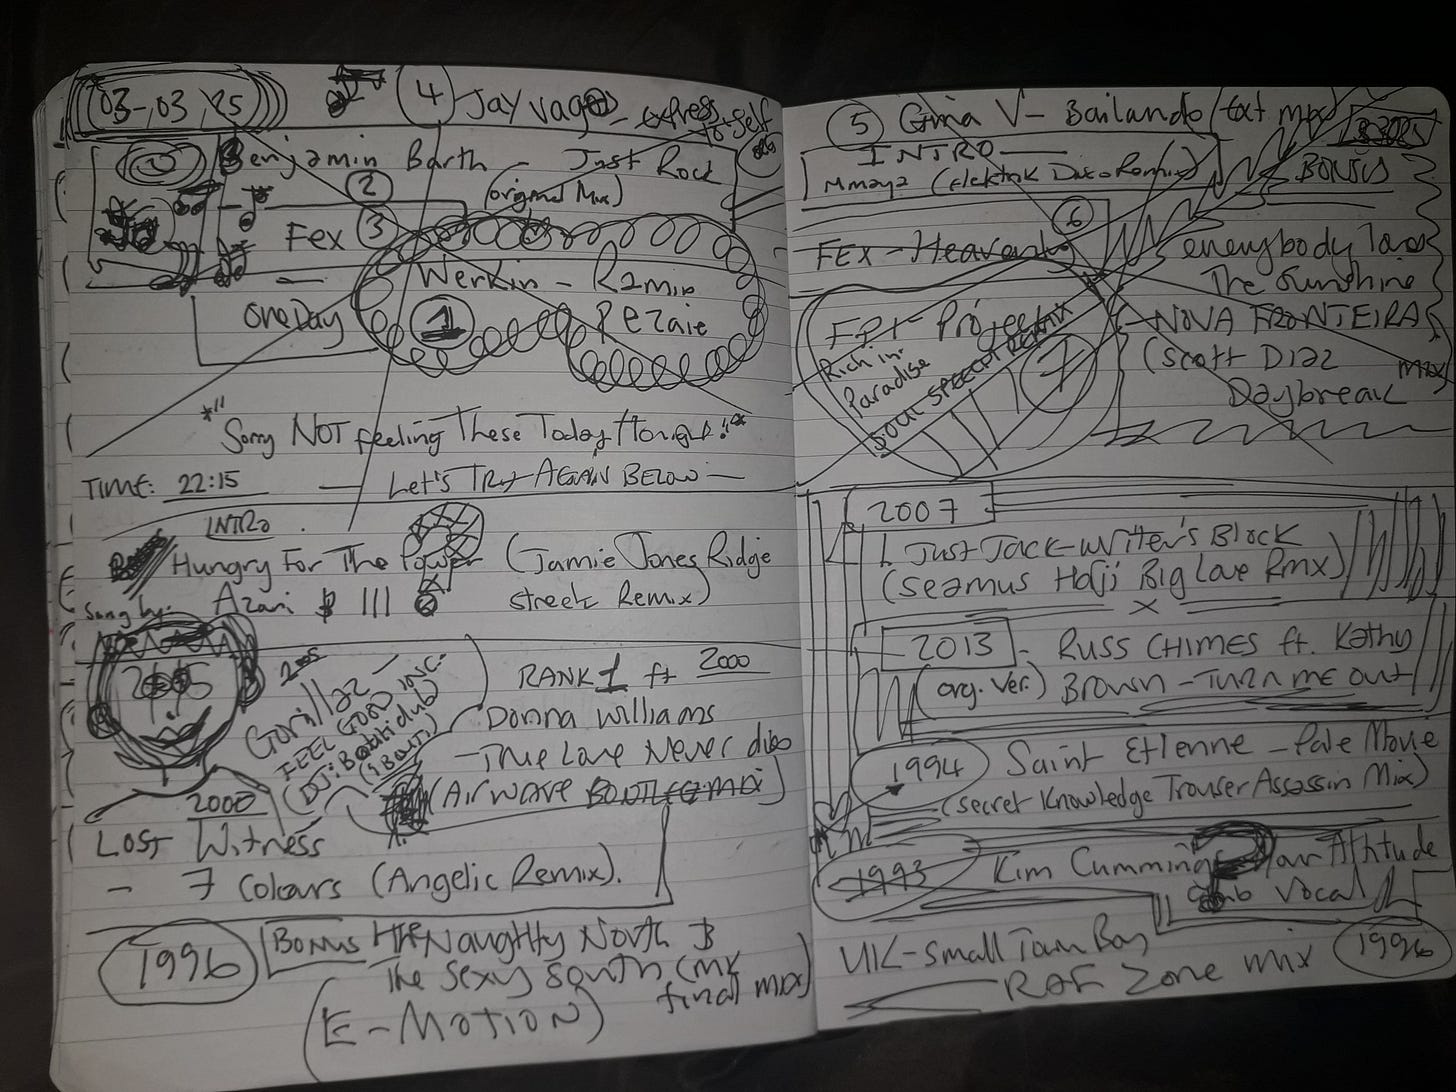 03-03/25
4 Jay vago - express
yo-self
Benjamin Barth - Just Rock
(original Mix)
2
Fex 3
Werkin - Ramin
Rezaie
1
One Day
*" Sorry NOT feeling These Today, Honey! "*
TIME: 22:15 — Let's Try AGAIN BELOW —
INTRO
Hungry For The Power (Jamie Jones Ridge
street Remix)
Song by: Azari $ III
2005
Gorillaz -
FEEL GOOD INC.
RANK 1 ft 2000
Donna Williams
- True Love Never dies
(Airwave
2000
Lost Witness
- 7 Colours (Angelic Remix).
1996
Bonus The Naughty North &
The Sexy South (MK
final mix)
(E-MOTION)
5 Gina V - Bailando
INTRO
BONUS
6
FEX - Heavenly
everybody loves
The Sunshine
- NOVA FRONTEIRA
(Scott Diaz
Daybreak mix)
FPI - Project
Rich in
Paradise
SOUL SPEECH REMIX
7
2007
1. Just Jack - Writer's Block
(Seamus Haji Big Love Rmx)
x
2013 - RUSS CHIMES ft. Kathy
(org. Ver.) Brown - Turn me out
1994 Saint Etienne - Pale Movie
(Secret Knowledge Trouser Assassin Mix)
1993 Kim Cummings ? Your Attitude
Club Vocal
UK - Small Town Boy 1996
RAF Zone mix